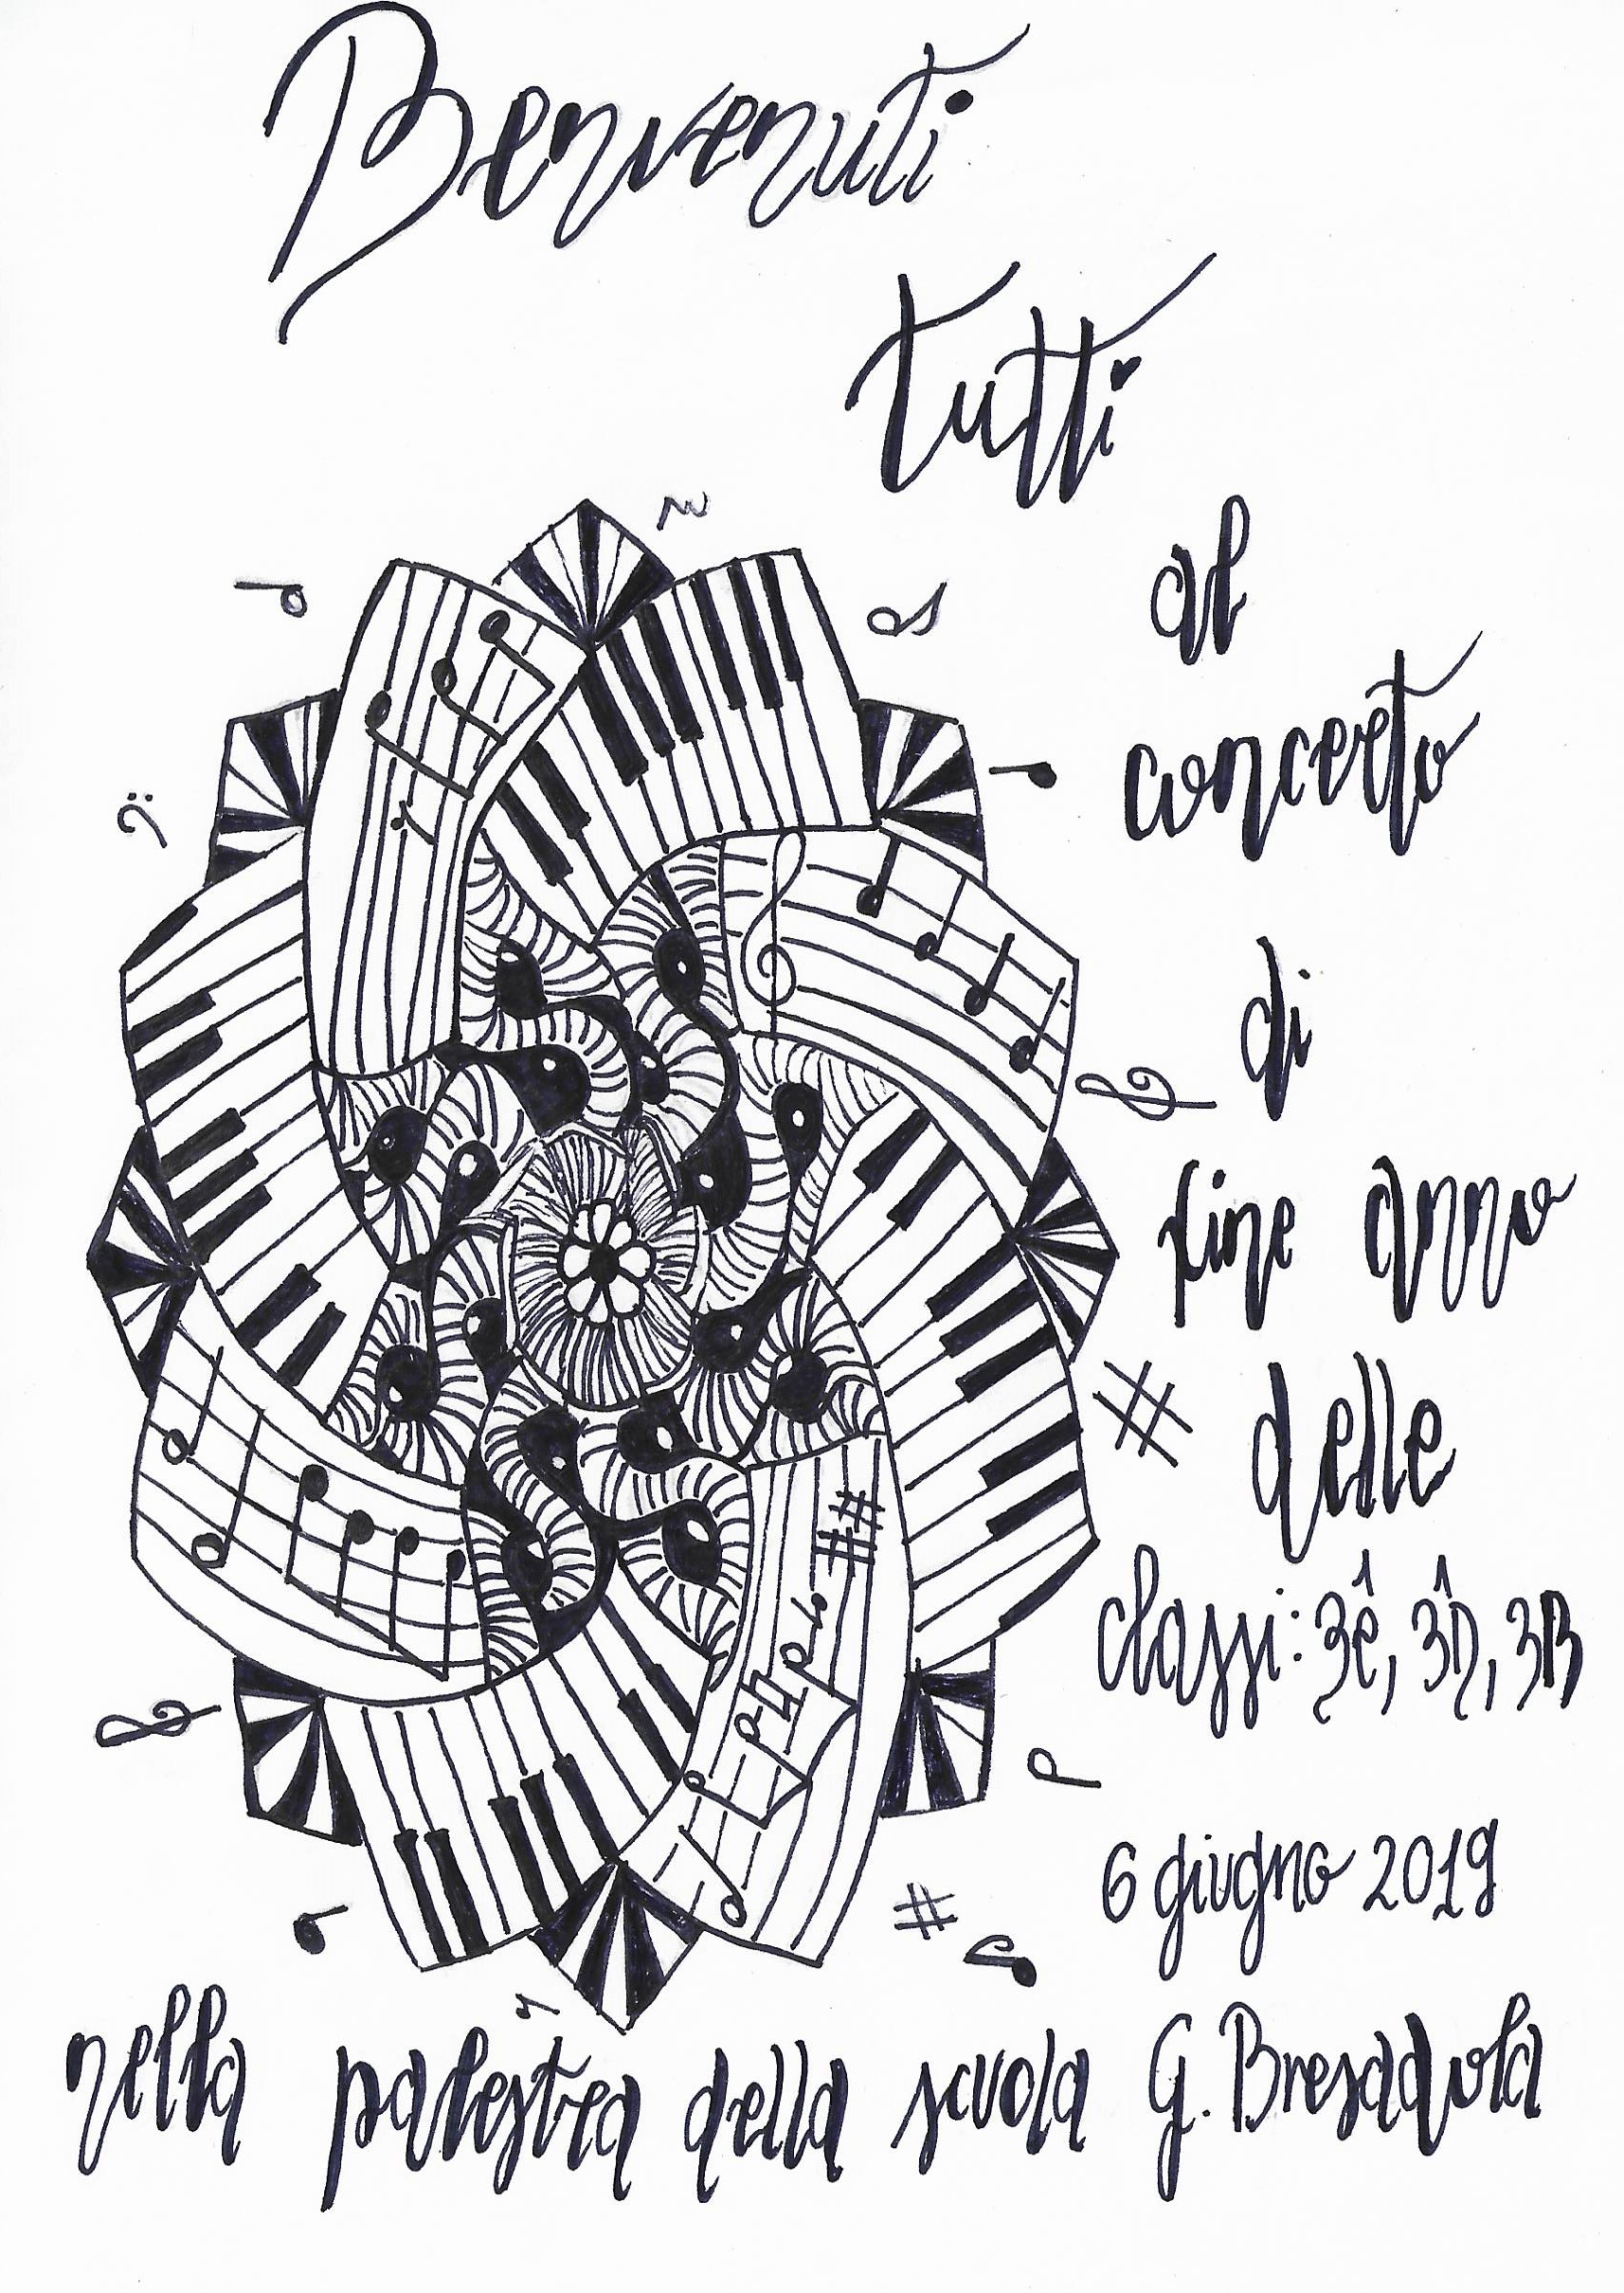 Benvenuti
tutti
al
concerto
di
fine anno
delle
classi: 3ê, 3D̂, 3B
6 giugno 2019
nella palestra della scuola G. Bresadola